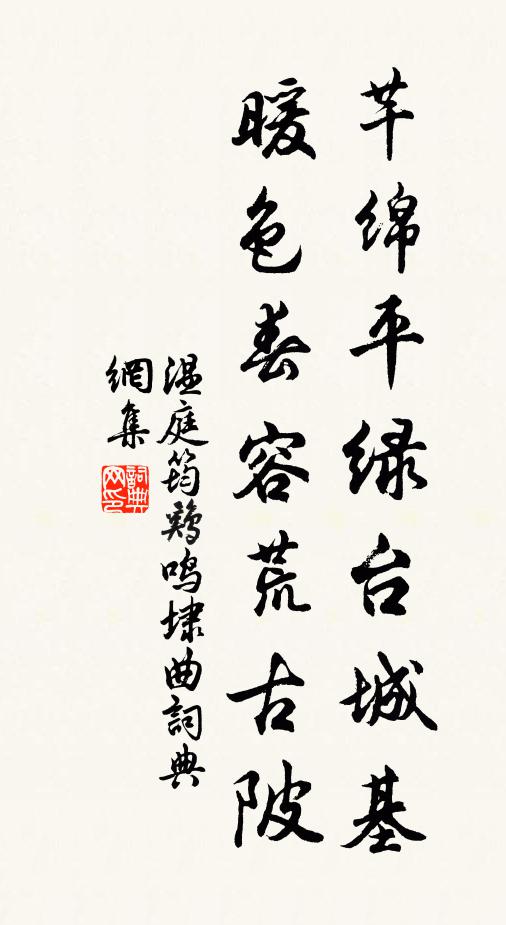 芊绵平绿台城基
暖色春容荒古陂
温庭筠鸡鸣埭曲詞典
網集
詞典
网印